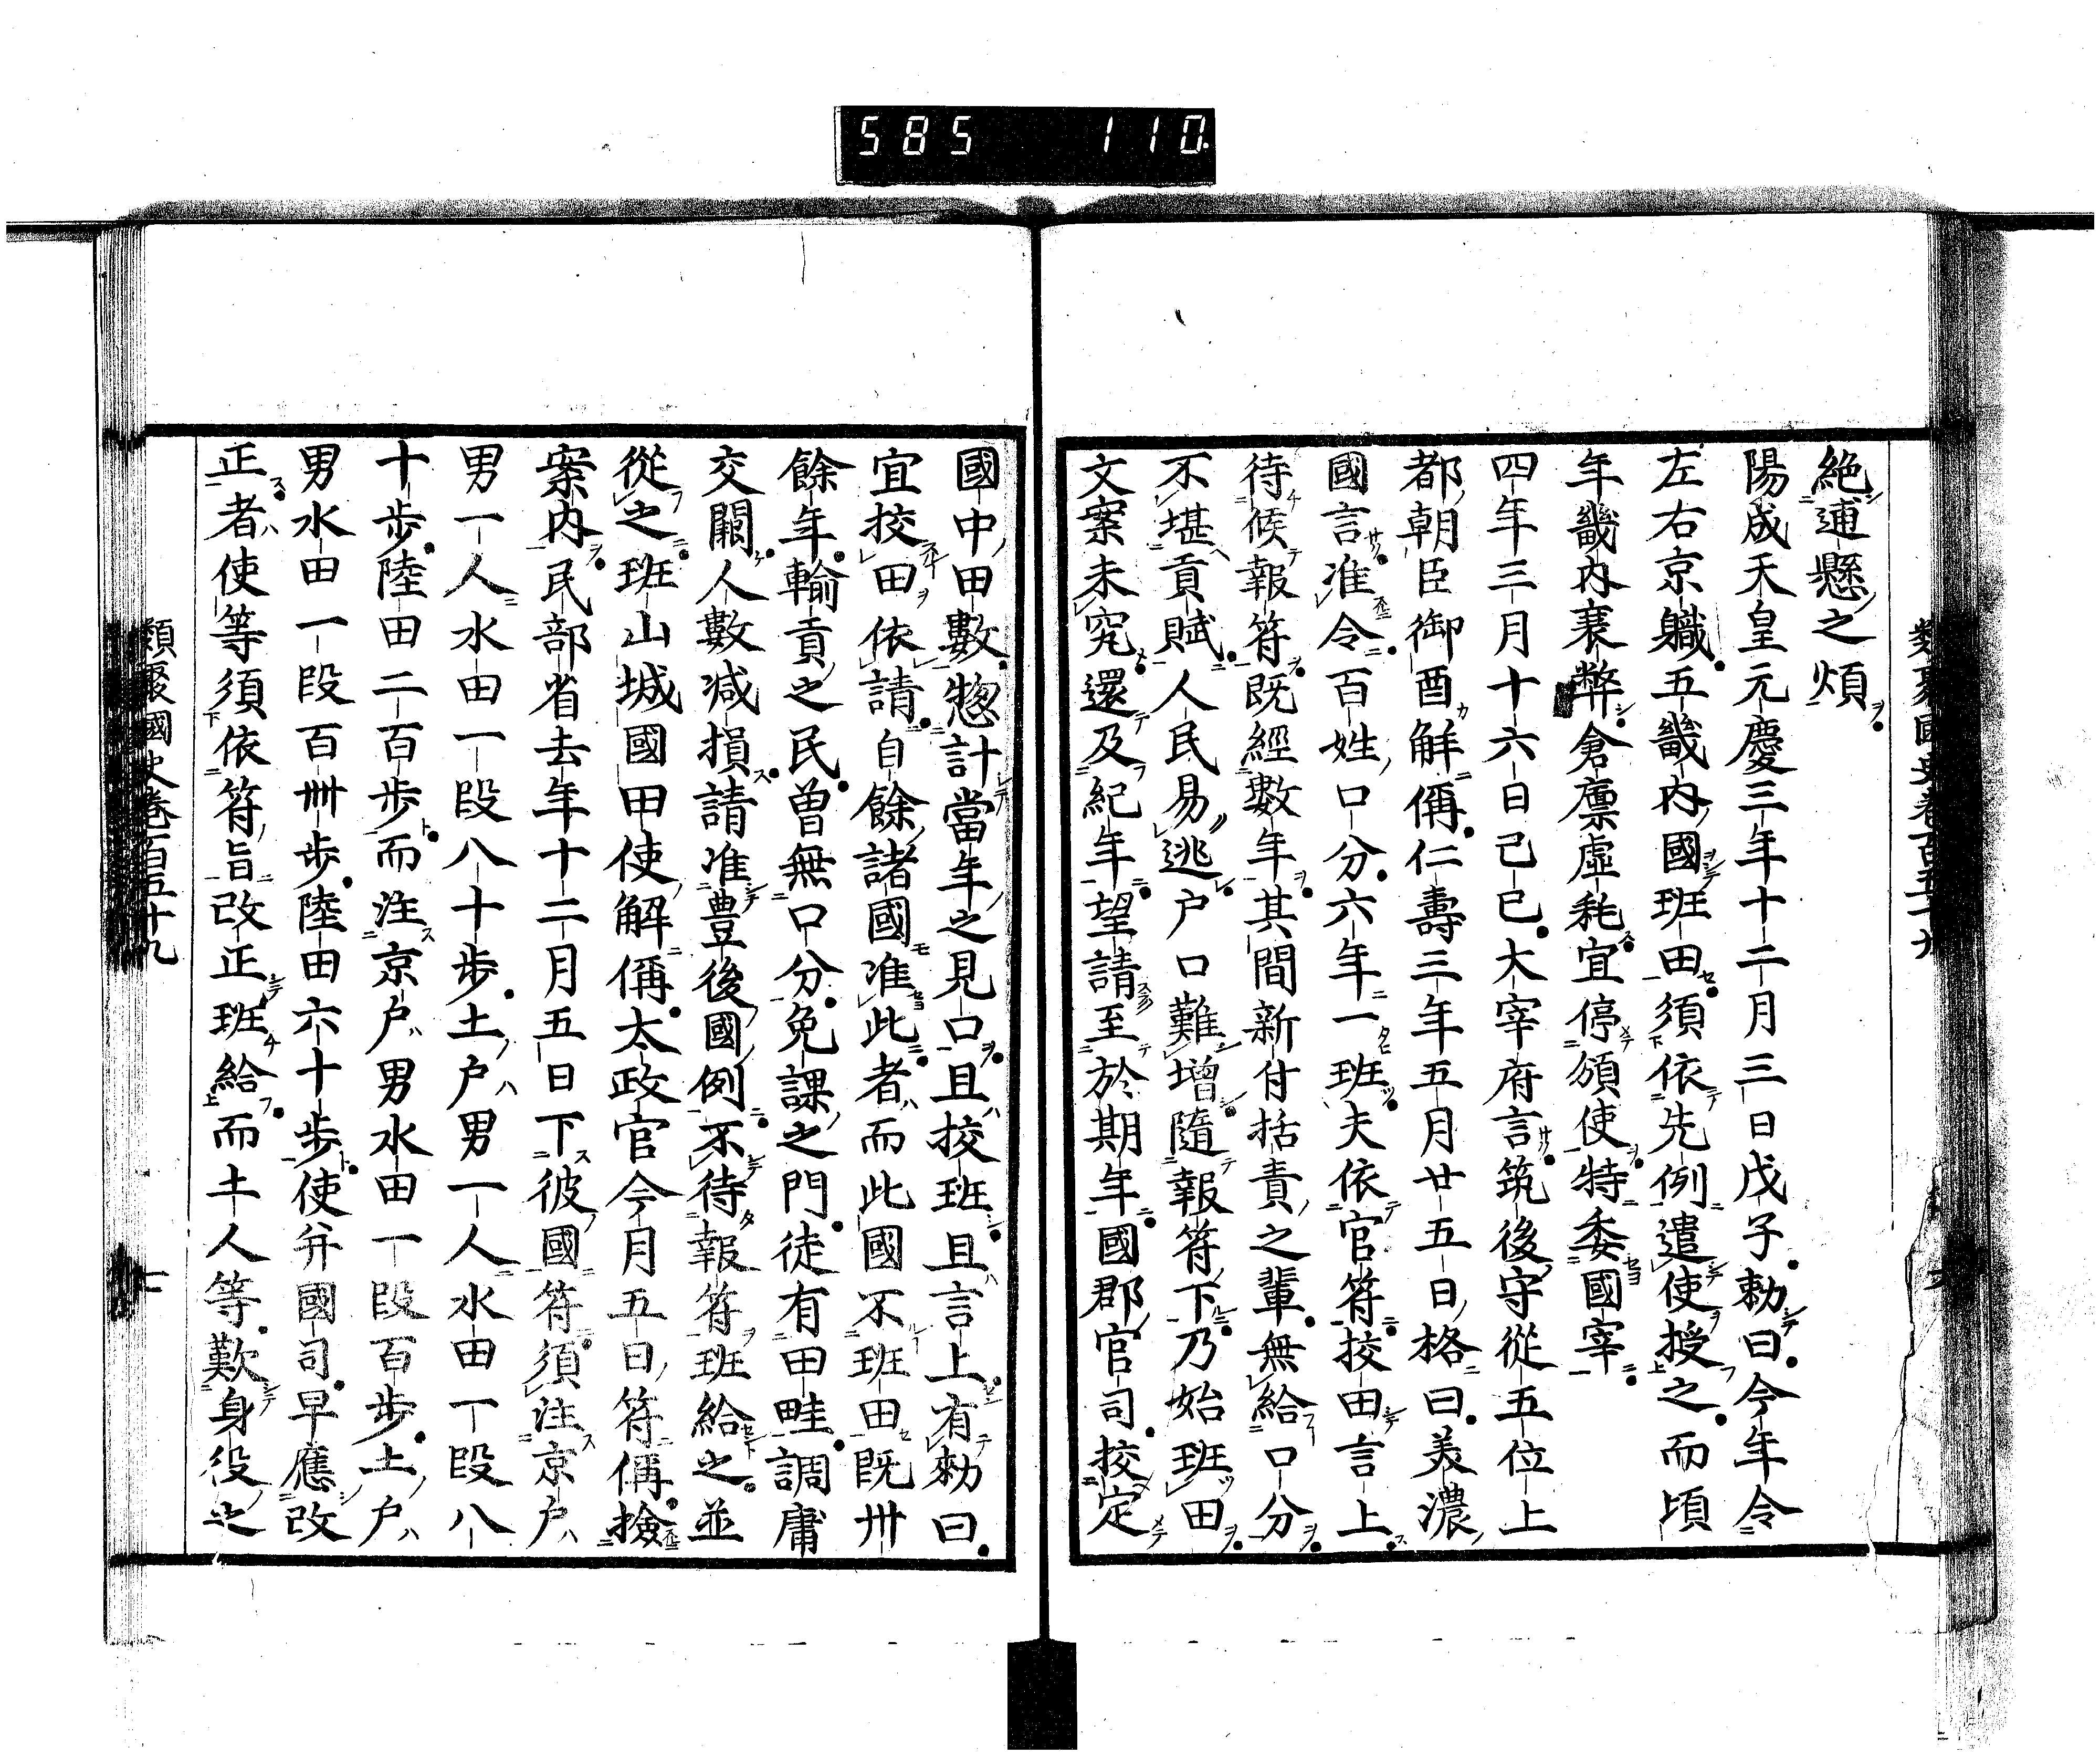 585 110
絶逋懸之煩
陽成天皇元慶三年十二月三日戊子勅曰今年令
左右京職五畿内國班田須依先例遣使授之而頃
年畿内衰弊倉廩虛耗宜停頒使特委國宰
四年三月十六日己巳大宰府言筑後守從五位上
都朝臣御酉解偁仁壽三年五月廿五日格曰美濃
國言准令百姓口分六年一班夫依官符挍田言上
待候報符既經數年其間新付括責之輩無給口分
不堪貢賦人民易逃户口難增隨報符下乃始班田
文案未究還及紀年望請至於期年國郡官司挍定
國中田數惣計當年之見口且挍班且言上有勅曰
宜挍田依請自餘諸國准此者而此國不班田既卅
餘年輸貢之民曽無口分免課之門徒有田畦調庸
交闕人數减損請准豊後國例不待報符班給之並
從之班山城國田使解偁太政官今月五日符偁撿
案内民部省去年十二月五日下彼國符須注京户
男一人水田一段八十歩土户男一人水田一段八
十歩陸田二百歩而注京户男水田一段百歩土户
男水田一段百卅歩陸田六十歩使并國司早應改
正者使等須依符旨改正班給而土人等歎身役之
類聚國史卷百五十九
七